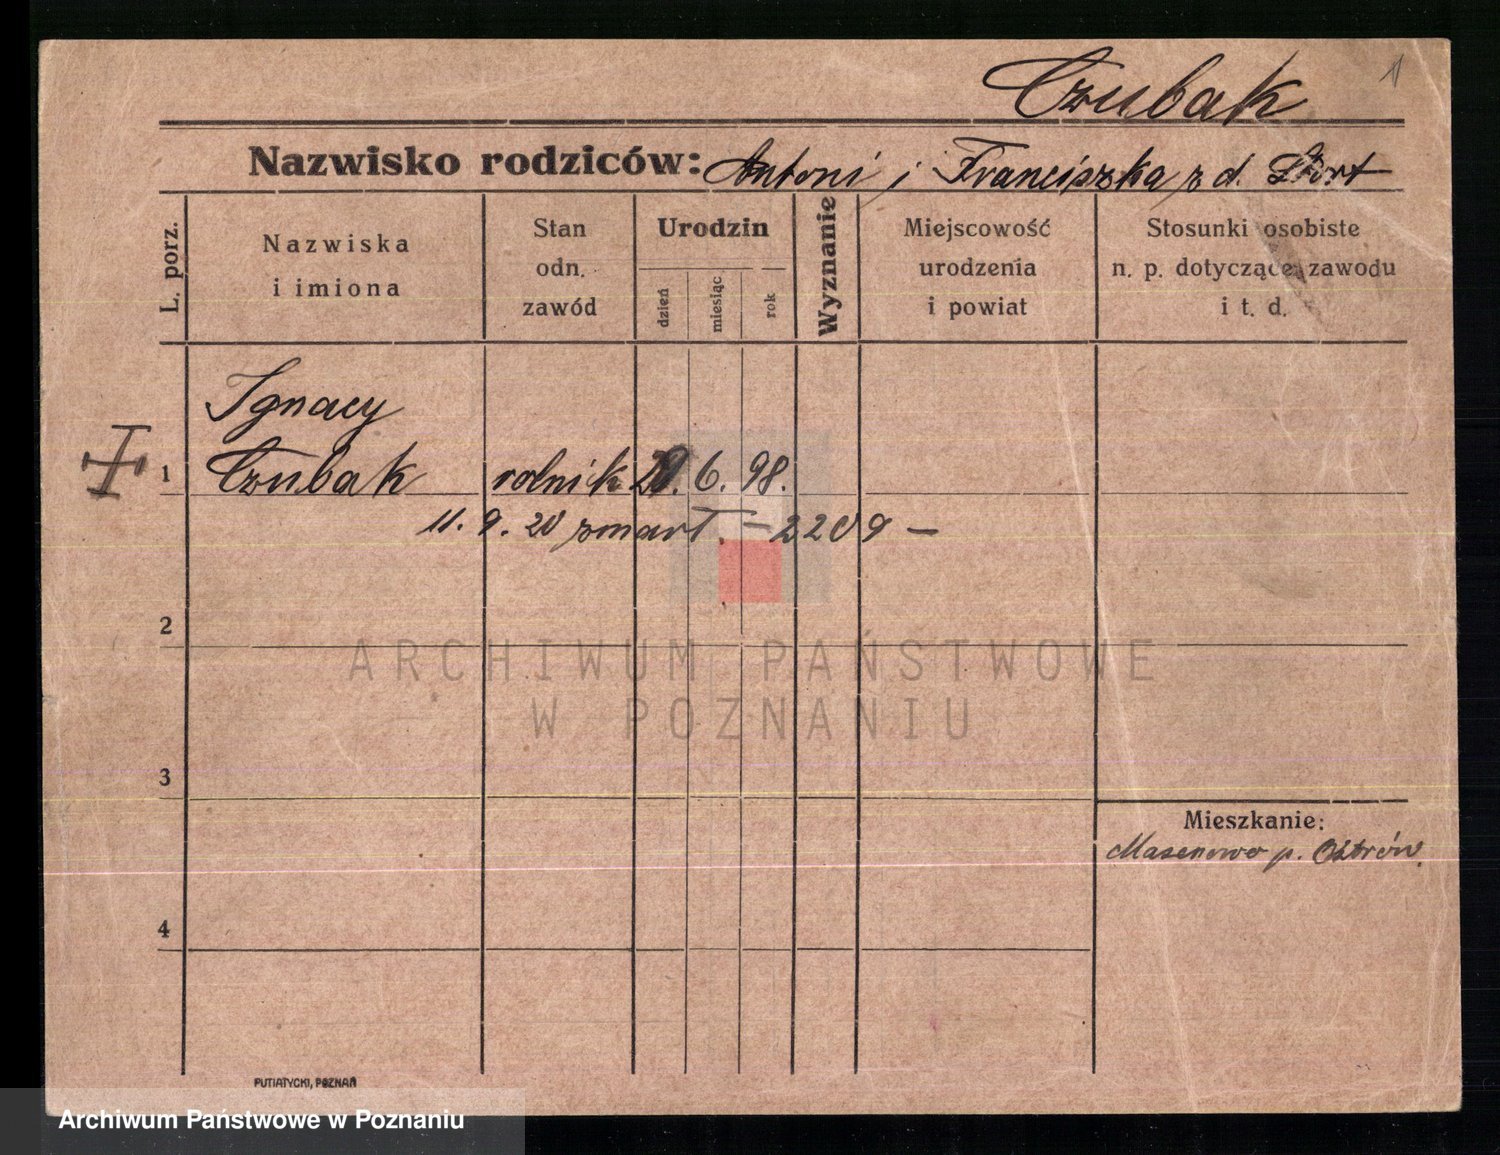 1
Czubak
Nazwisko rodziców: Antoni i Franciszka z d.
L. porz.
Nazwiska
i imiona
Stan
odn.
zawód
Urodzin
dzień
miesiąc
rok
Wyznanie
Miejscowość
urodzenia
i powiat
Stosunki osobiste
n. p. dotyczące zawodu
i t. d.
Ignacy
1 Czubak rolnik 6. 98.
11. 9. 20 zmarł. – 2209 –
2
ARCHIWUM PAŃSTWOWE
W POZNANIU
3
Mieszkanie:
p. Ostrów.
4
PUTIATYCKI, POZNAŃ
Archiwum Państwowe w Poznaniu